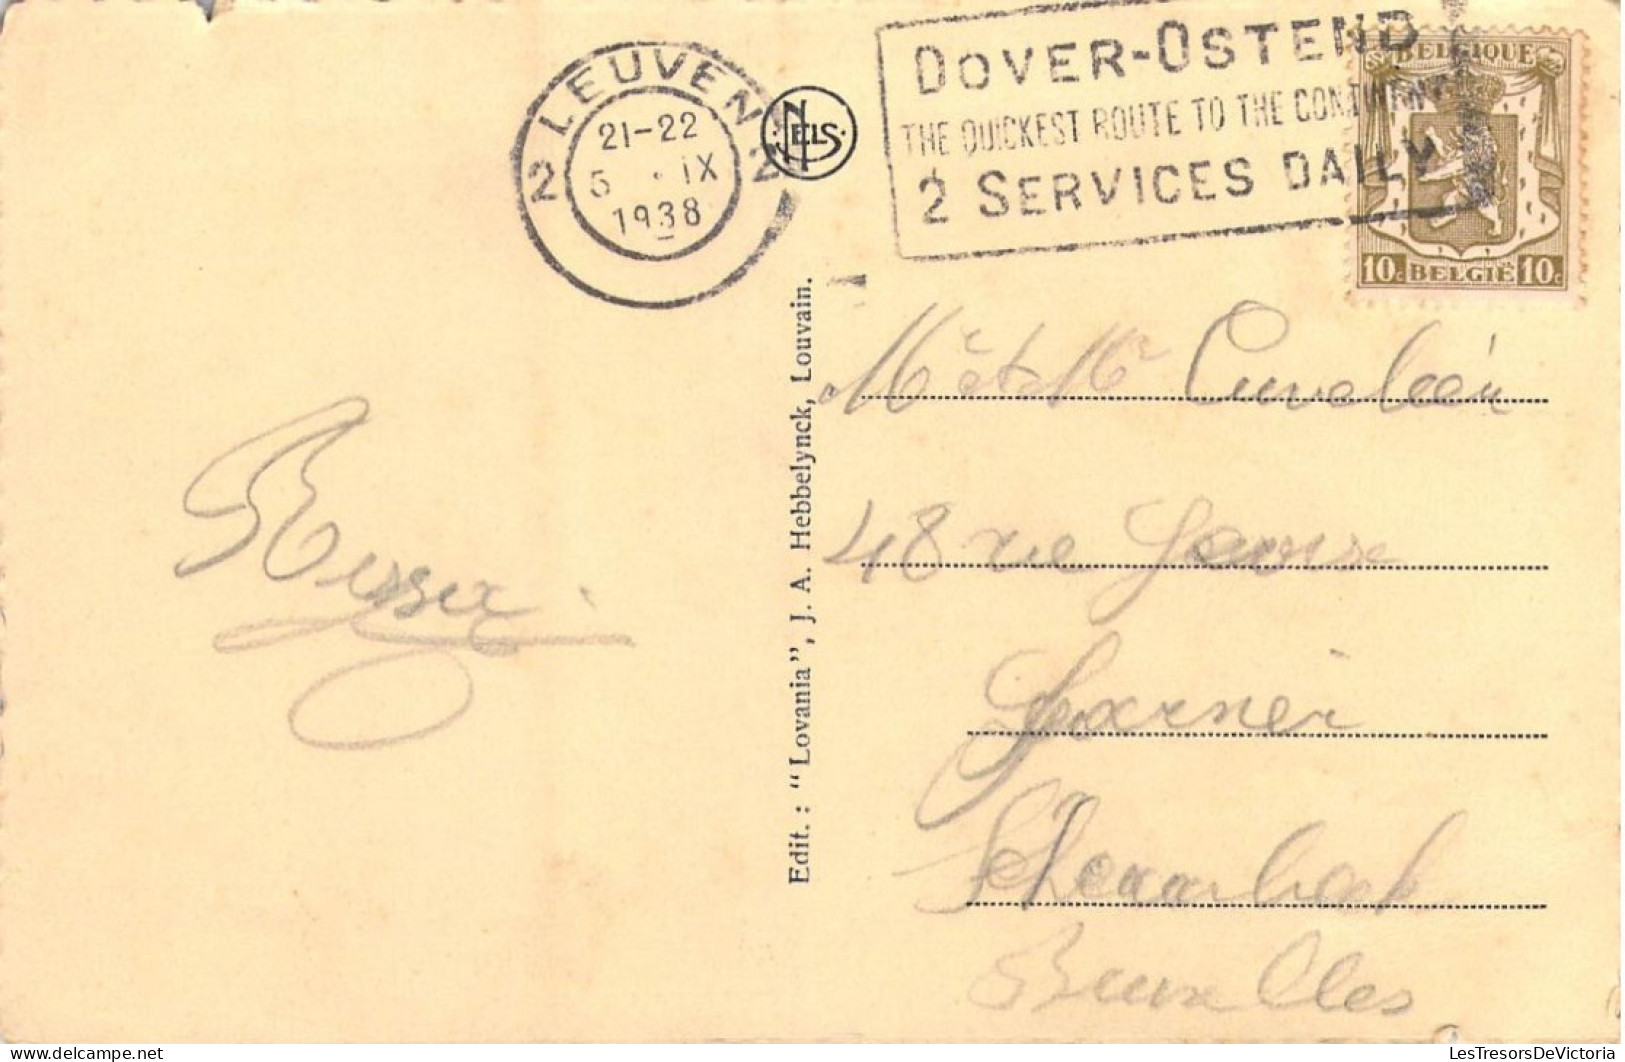 LEUVEN
2 2
21-22
5 · IX
1938
NELS
DOVER-OSTEND
THE QUICKEST ROUTE TO THE CONTINENT
2 SERVICES DAILY
BELGIQUE
10c BELGIË 10c
Edit. : "Lovania", J. A. Hebbelynck, Louvain.
Mr et Mr
48 rue
Bruxelles
LesTresorsDeVictoria